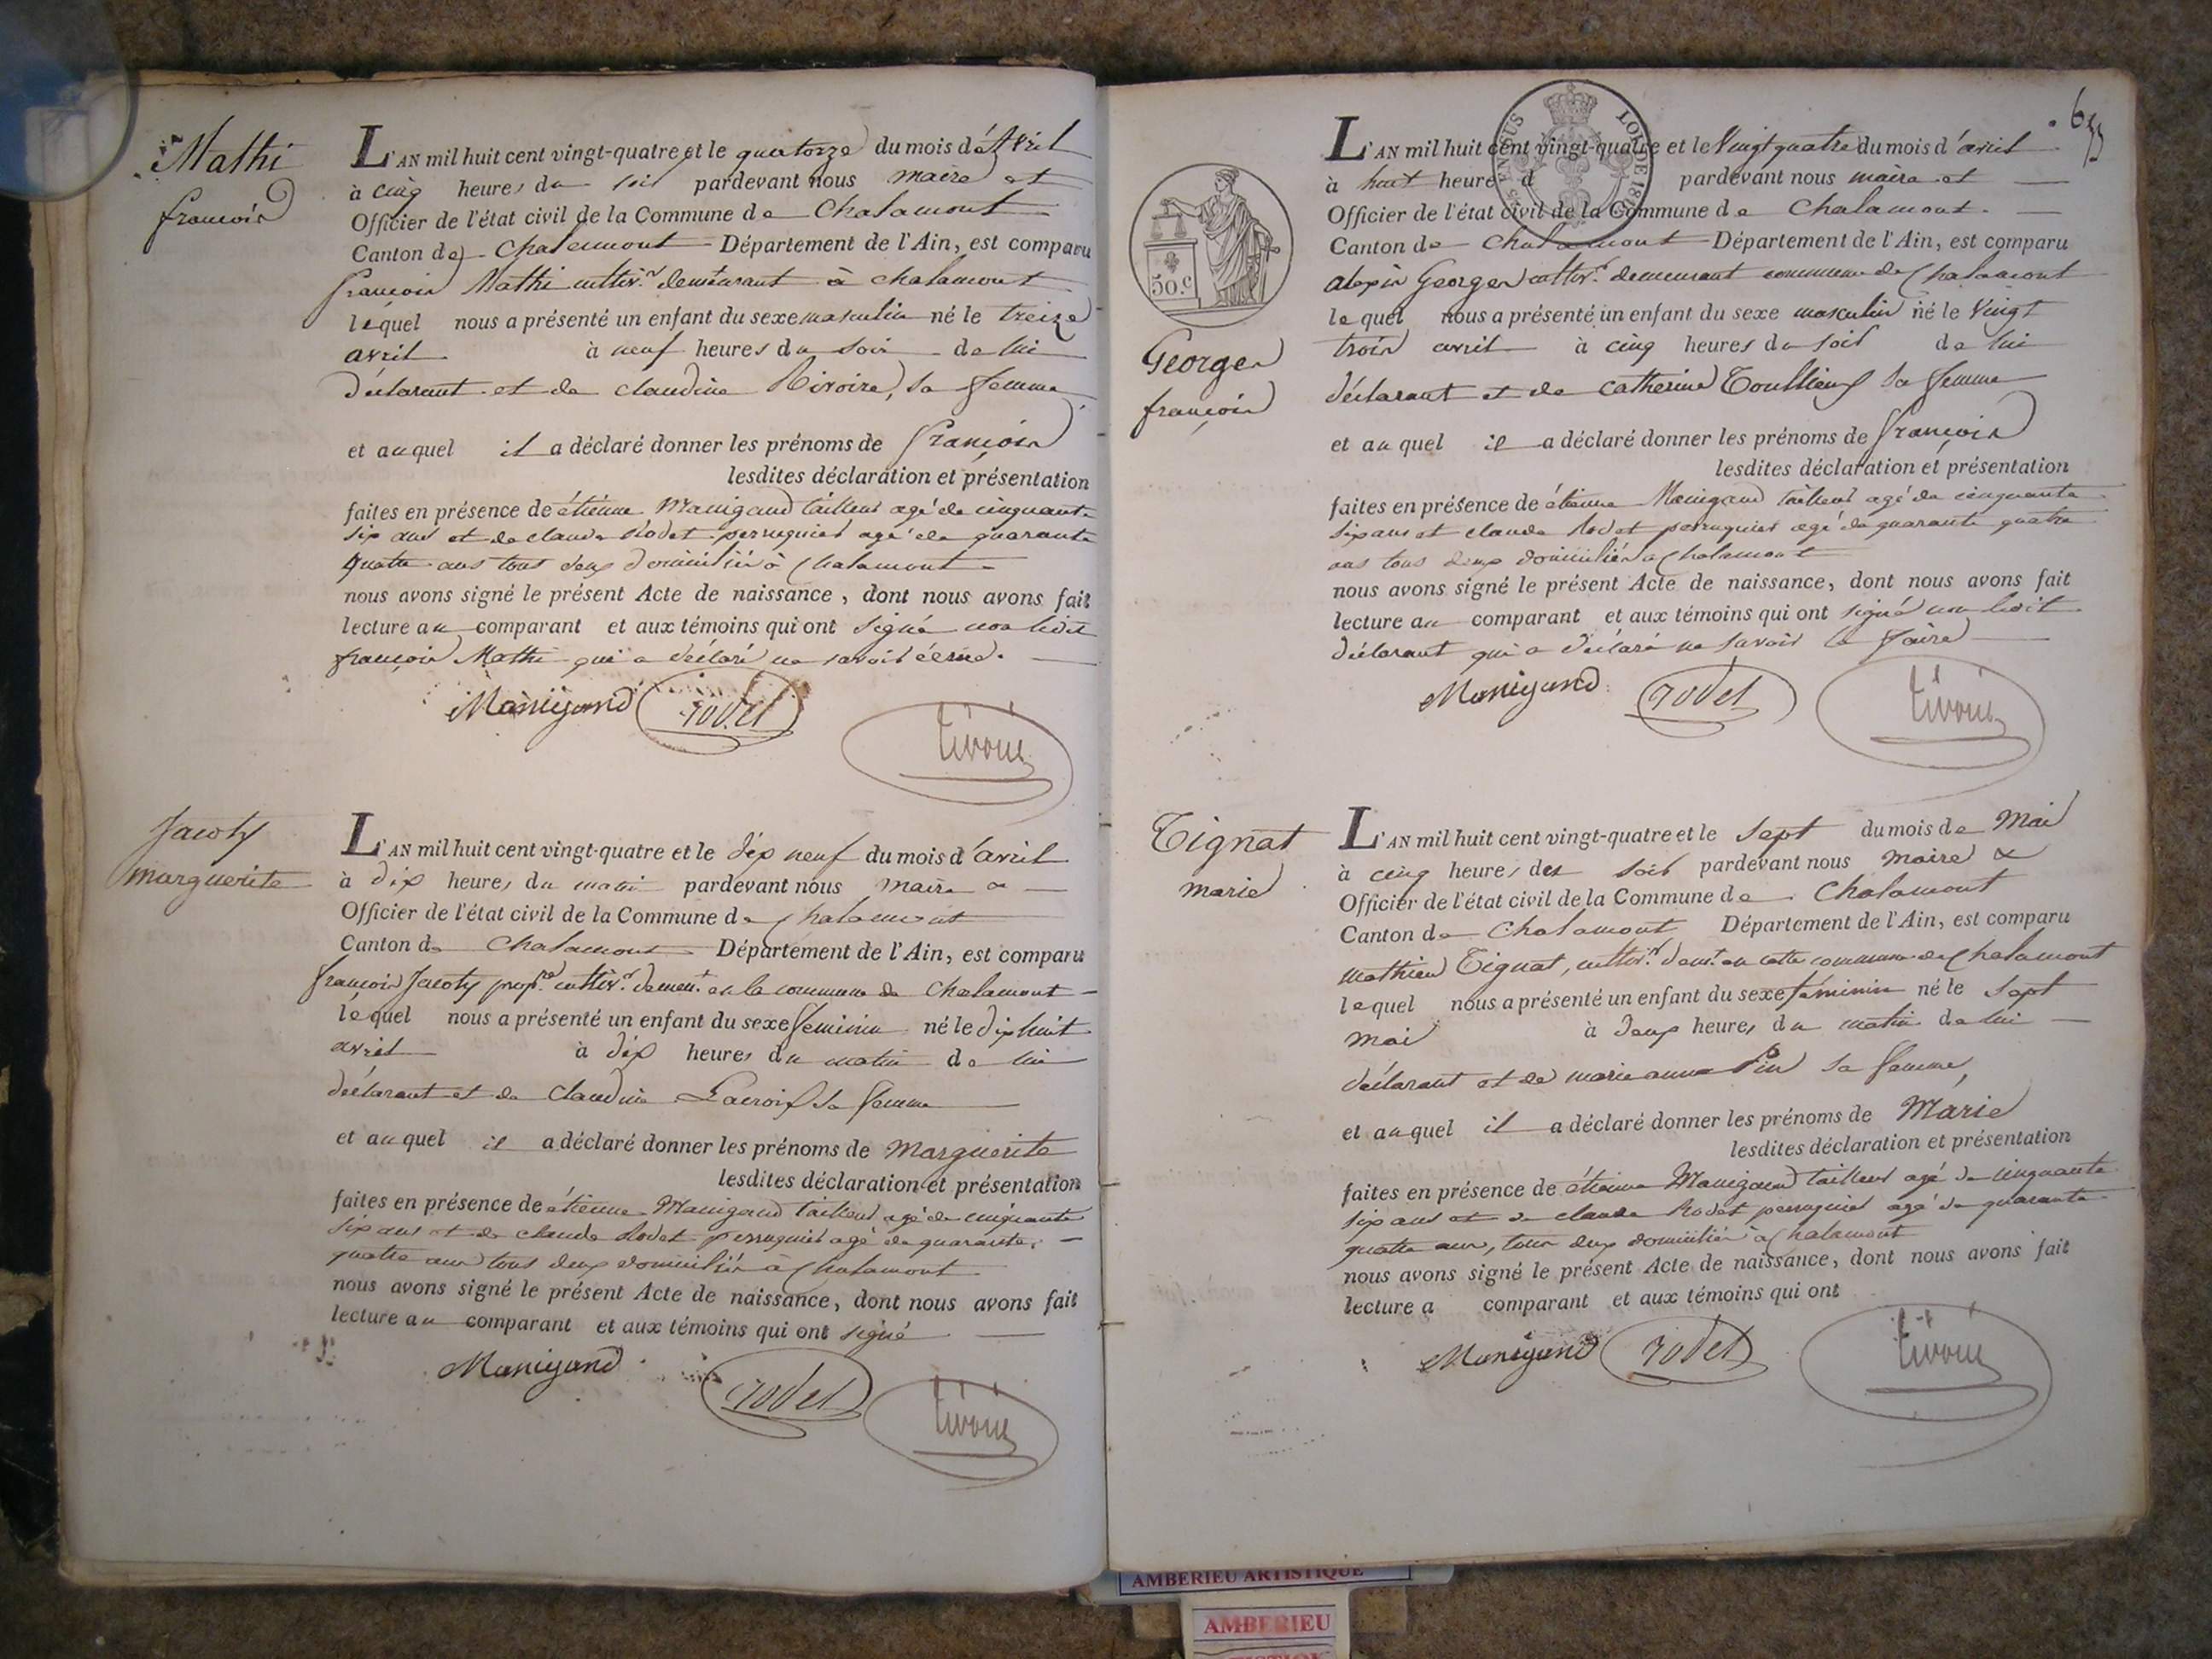 Mathi
françois
L'AN mil huit cent vingt-quatre et le quatorze du mois d'Avril
à cinq heures du soir pardevant nous maire et
Officier de l'état civil de la Commune de Chalamont
Canton de Chalamont Département de l'Ain, est comparu
françois Mathi cultiv.r demeurant à chalamont
lequel nous a présenté un enfant du sexe masculin né le treize
avril à neuf heures du soir de lui
déclarant et de claudine Rivoire, sa femme
et auquel il a déclaré donner les prénoms de françois
lesdites déclaration et présentation
faites en présence de étienne Manigand tailleur agé de cinquante
six ans et de claude Rodet perruquier agé de quarante
quatre ans tous deux domiciliés à Chalamont
nous avons signé le présent Acte de naissance, dont nous avons fait
lecture au comparant et aux témoins qui ont signé non ledit
françois Mathi qui a déclaré ne savoir écrire.
Manigand rodet
Jacoty
marguerite
L'AN mil huit cent vingt-quatre et le dix neuf du mois d'avril
à dix heures du matin pardevant nous maire &
Officier de l'état civil de la Commune de Chalamont
Canton de Chalamont Département de l'Ain, est comparu
françois Jacoty prop.re cultiv.r demeu.t en la commune de Chalamont
lequel nous a présenté un enfant du sexe feminin né le dix huit
avril à dix heures du matin de lui
déclarant et de claudine Lacroix sa femme
et auquel il a déclaré donner les prénoms de Marguerite
lesdites déclaration et présentation
faites en présence de étienne Manigand tailleur agé de cinquante
six ans et de claude Rodet perruquier agé de quarante
quatre ans tous deux domiciliés à Chalamont
nous avons signé le présent Acte de naissance, dont nous avons fait
lecture au comparant et aux témoins qui ont signé
Manigand rodet
50.c
Georges
françois
L'AN mil huit cent vingt-quatre et le Vingt quatre du mois d'avril
à huit heure d pardevant nous maire et
Officier de l'état civil de la Commune de Chalamont.
Canton de Chalamont Département de l'Ain, est comparu
alexis Georges cultiv.r demeurant commune de Chalamont
lequel nous a présenté un enfant du sexe masculin né le Vingt
trois avril à cinq heures du soir de lui
déclarant et de catherine sa femme
et au quel il a déclaré donner les prénoms de françois
lesdites déclaration et présentation
faites en présence de étienne Manigand tailleur agé de cinquante
six ans et claude Rodet perruquier agé de quarante quatre
ans tous deux domiciliés à Chalamont
nous avons signé le présent Acte de naissance, dont nous avons fait
lecture au comparant et aux témoins qui ont signé non ledit
déclarant qui a déclaré ne savoir le faire
Manigand rodet
Tignat
marie
L'AN mil huit cent vingt-quatre et le sept du mois de Mai
à cinq heures du soir pardevant nous maire &
Officier de l'état civil de la Commune de Chalamont
Canton de Chalamont Département de l'Ain, est comparu
mathieu Tignat, cultiv.r dem.t en cette commune de Chalamont
lequel nous a présenté un enfant du sexe féminin né le sept
mai à deux heures du matin de lui
déclarant et de marie anne Pin sa femme,
et auquel il a déclaré donner les prénoms de Marie
lesdites déclaration et présentation
faites en présence de étienne Manigand tailleur agé de cinquante
six ans et de claude Rodet perruquier agé de quarante
quatre ans, tous deux domiciliés à Chalamont
nous avons signé le présent Acte de naissance, dont nous avons fait
lecture a comparant et aux témoins qui ont
Manigand rodet
AMBERIEU ARTISTIQUE
AMBERIEU